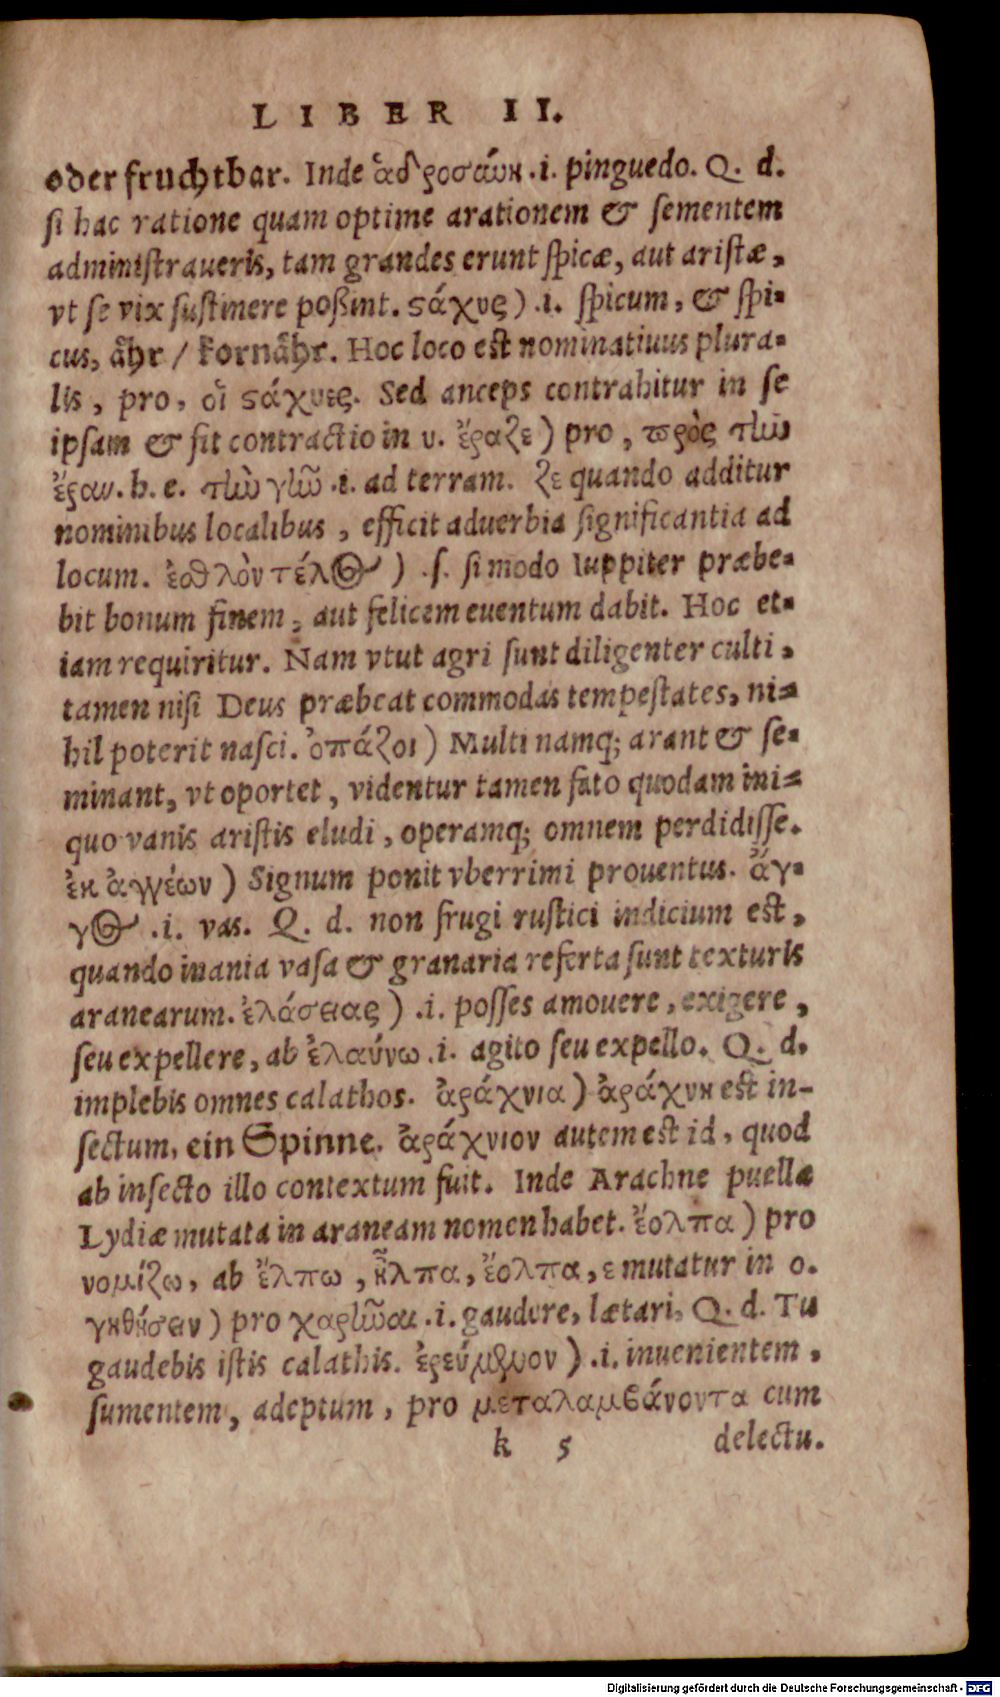 LIBER II.
oder fruchtbar. Inde ἁδροσύνη .i. pinguedo. Q. d.
si hac ratione quam optime arationem & sementem
administraueris, tam grandes erunt spicæ, aut aristæ,
vt se vix sustinere poßint. ϛάχυς) .i. spicum, & spi-
cus, ähr / kornähr. Hoc loco est nominatiuus plura-
lis, pro, οἱ ϛάχυες. Sed anceps contrahitur in se
ipsam & fit contractio in υ. ἔραζε) pro, πρὸς τὴν
ἔραν. h. e. τὴν γῆν .i. ad terram. ζε quando additur
nominibus localibus, efficit aduerbia significantia ad
locum. ἐσθλὸν τέλος) .s. si modo Iuppiter præbe-
bit bonum finem, aut felicem euentum dabit. Hoc et-
iam requiritur. Nam vtut agri sunt diligenter culti,
tamen nisi Deus præbeat commodas tempestates, ni-
hil poterit nasci. ὀπάζοι) Multi namq; arant & se-
minant, vt oportet, videntur tamen fato quodam ini-
quo vanis aristis eludi, operamq; omnem perdidisse.
ἐκ ἀγγέων) Signum ponit vberrimi prouentus. ἄγ-
γος .i. vas. Q. d. non frugi rustici indicium est,
quando inania vasa & granaria referta sunt texturis
aranearum. ἐλάσειας) .i. posses amouere, exigere,
seu expellere, ab ἐλαύνω .i. agito seu expello. Q. d.
implebis omnes calathos. ἀράχνια) ἀράχνη est in-
sectum, ein Spinne. ἀράχνιον autem est id, quod
ab insecto illo contextum fuit. Inde Arachne puella
Lydiæ mutata in araneam nomen habet. ἔολπα) pro
νομίζω, ab ἔλπω, ἦλπα, ἔολπα, ε mutatur in ο.
γηθήσειν) pro χαρῆναι .i. gaudere, lætari, Q. d. Tu
gaudebis istis calathis. ἐρεύμενον) .i. inuenientem,
sumentem, adeptum, pro μεταλαμβάνοντα cum
k 5 delectu.
Digitalisierung gefördert durch die Deutsche Forschungsgemeinschaft - DFG